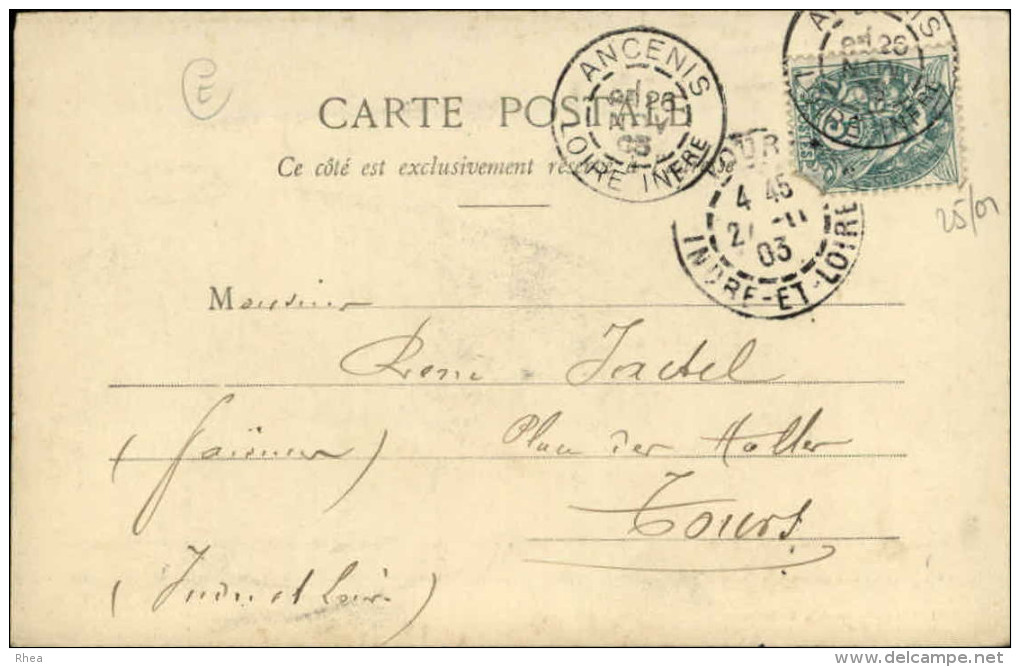 ANCENIS
26
NOV
03
LOIRE INFRE
CARTE POSTALE
Ce côté est exclusivement réservé à l'adresse
4 45
27 -11
03
INDRE-ET-LOIRE
25/01
Monsieur
René Jactel
Place des Halles
Tours
(Indre et Loire)
Rhea
delcampe.net